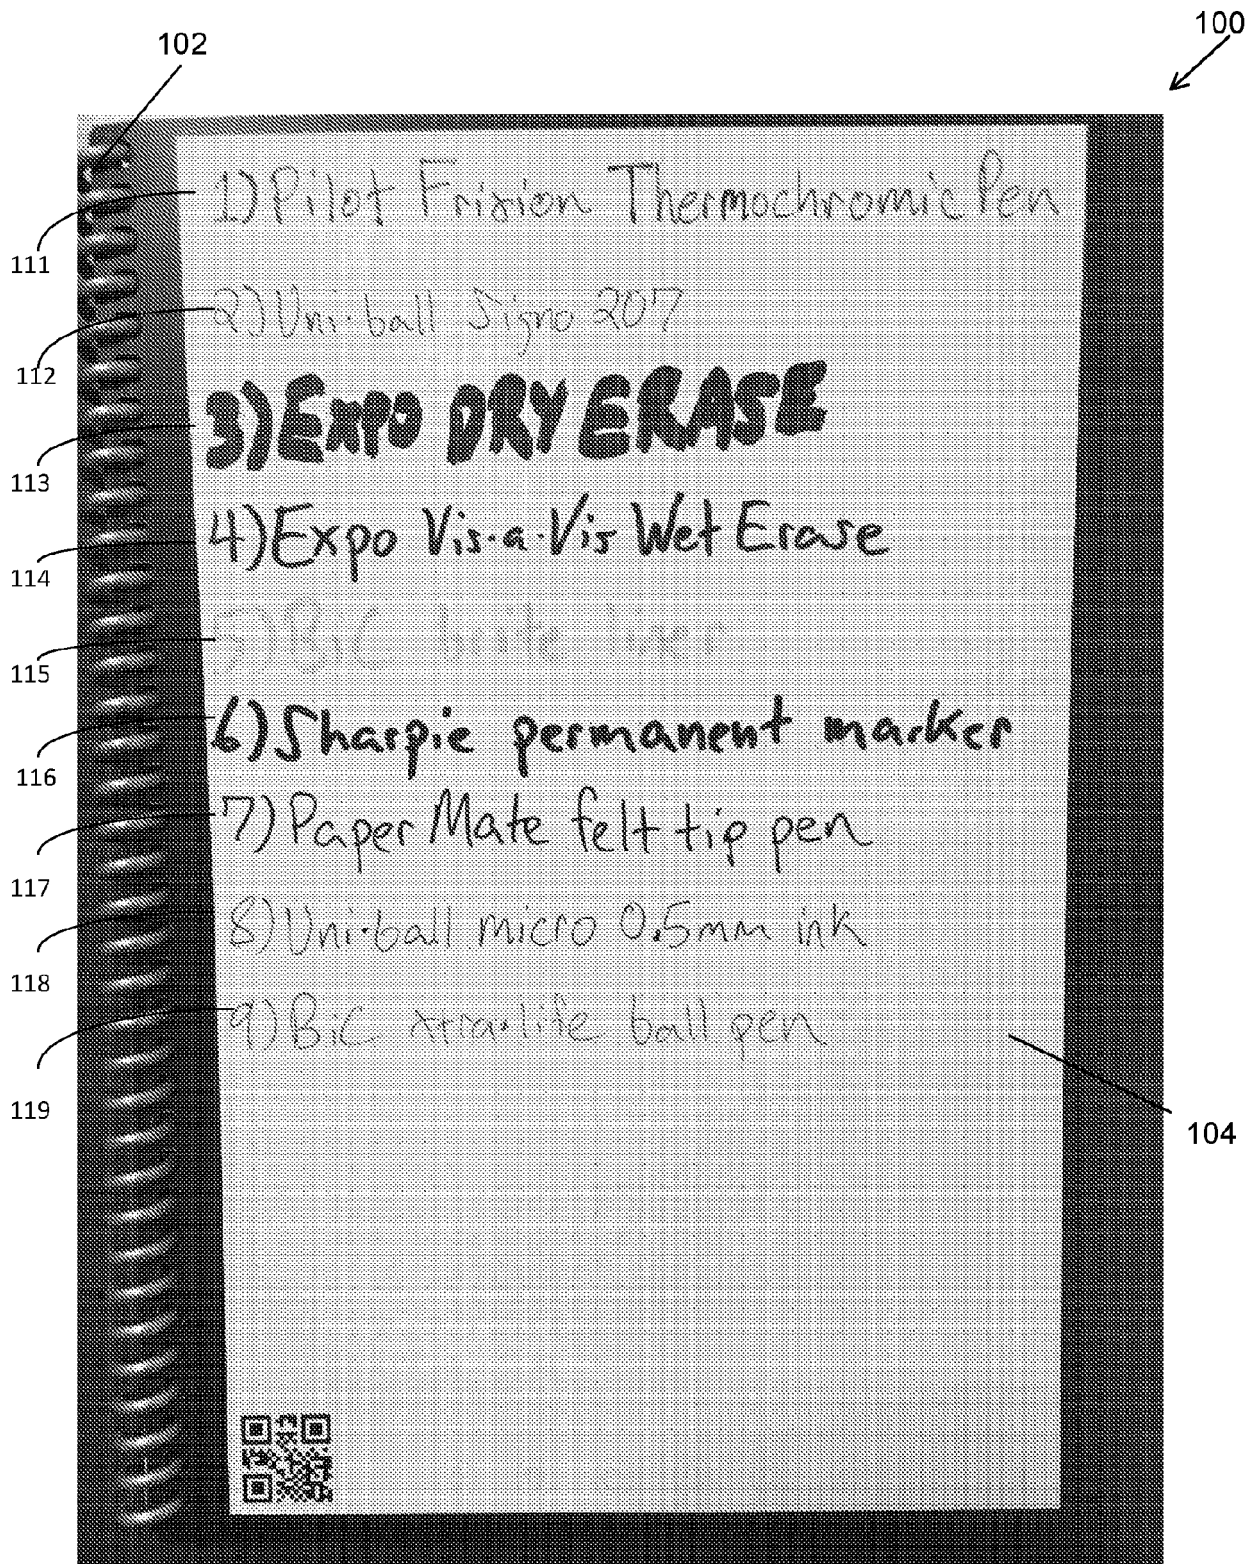 100
102
1) Pilot Frixion Thermochromic Pen
111
2) Uni-ball Signo 207
112
3) EXPO DRY ERASE
113
4) Expo Vis-a-Vis Wet Erase
114
5) BiC brite liner
115
6) Sharpie permanent marker
116
7) Paper Mate felt tip pen
117
8) Uni-ball micro 0.5mm ink
118
9) BiC xtra-life ball pen
119
104